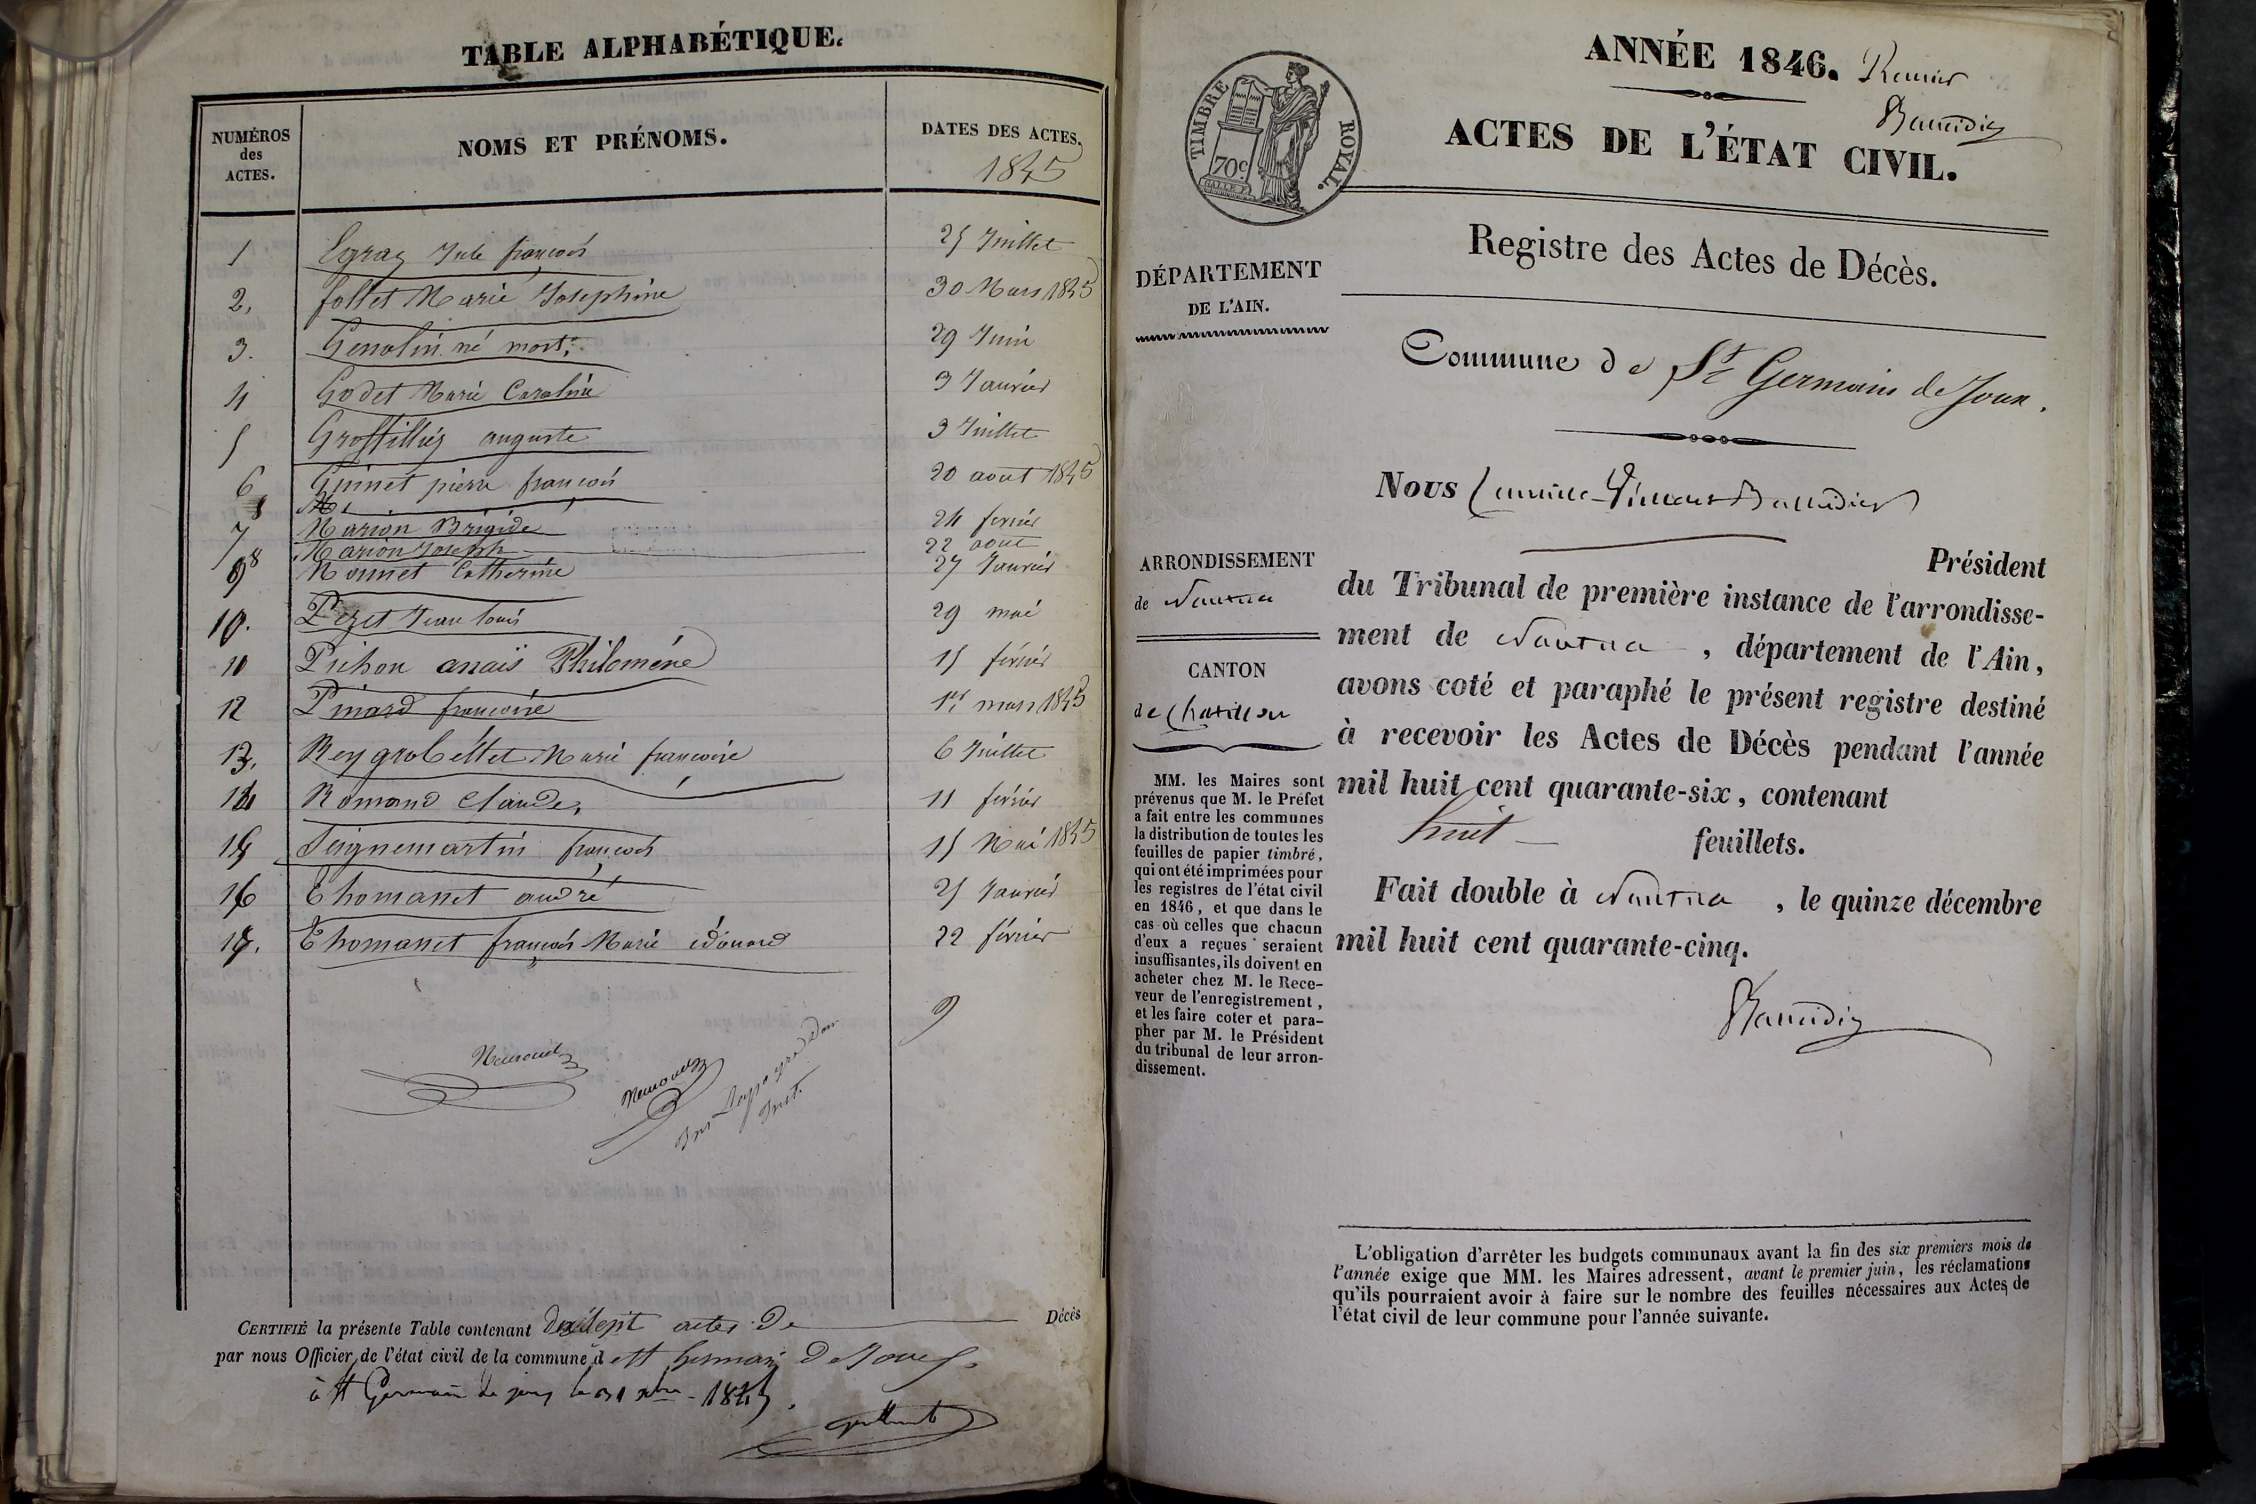 TABLE ALPHABÉTIQUE.
NUMÉROS des ACTES.
NOMS ET PRÉNOMS.
DATES DES ACTES.
1845
1 Egraz Jule françois 25 Juillet
2. follet Marie Josephine 30 Mars 1845
3. Genolin né mort. 29 Juin
4 Godet Marie Caroline 3 Janvier
5 Grossilliez auguste 3 Juillet
6 Guinet pierre françois 20 aout 1845
7 Marion Brigide 24 fevrier
8 Marion Joseph 22 aout
9 Monnet Catherine 27 Janvier
10. Pezet Jean louis 29 mai
11 Pichon anaïs Philomène 15 février
12 Pinard françoise 1er mars 1845
13. Reygrobellet Marie françoise 6 Juillet
14 Romand Claude. 11 février
15 Seignemartin françois 15 Mai 1845
16 Thomasset andré 25 Janvier
17. Thomasset françois Marie édouard 22 février
CERTIFIÉ la présente Table contenant dix sept actes de Décès
par nous Officier de l'état civil de la commune de St Germain de Joux.
à St Germain de joux le 31 xbre 1845.
ANNÉE 1846. Premier
TIMBRE ROYAL.
70c
ACTES DE L'ÉTAT CIVIL.
Registre des Actes de Décès.
DÉPARTEMENT
DE L'AIN.
Commune de St Germain de Joux.
Nous Camille Vincent
Président
ARRONDISSEMENT
de Nantua
du Tribunal de première instance de l'arrondisse-
ment de Nantua, département de l'Ain,
CANTON
de Chatillon
avons coté et paraphé le présent registre destiné
à recevoir les Actes de Décès pendant l'année
mil huit cent quarante-six, contenant
huit feuillets.
Fait double à Nantua, le quinze décembre
mil huit cent quarante-cinq.
MM. les Maires sont
prévenus que M. le Préfet
a fait entre les communes
la distribution de toutes les
feuilles de papier timbré,
qui ont été imprimées pour
les registres de l'état civil
en 1846, et que dans le
cas où celles que chacun
d'eux a reçues seraient
insuffisantes, ils doivent en
acheter chez M. le Rece-
veur de l'enregistrement,
et les faire coter et para-
pher par M. le Président
du tribunal de leur arron-
dissement.
L'obligation d'arrêter les budgets communaux avant la fin des six premiers mois de
l'année exige que MM. les Maires adressent, avant le premier juin, les réclamations
qu'ils pourraient avoir à faire sur le nombre des feuilles nécessaires aux Actes de
l'état civil de leur commune pour l'année suivante.